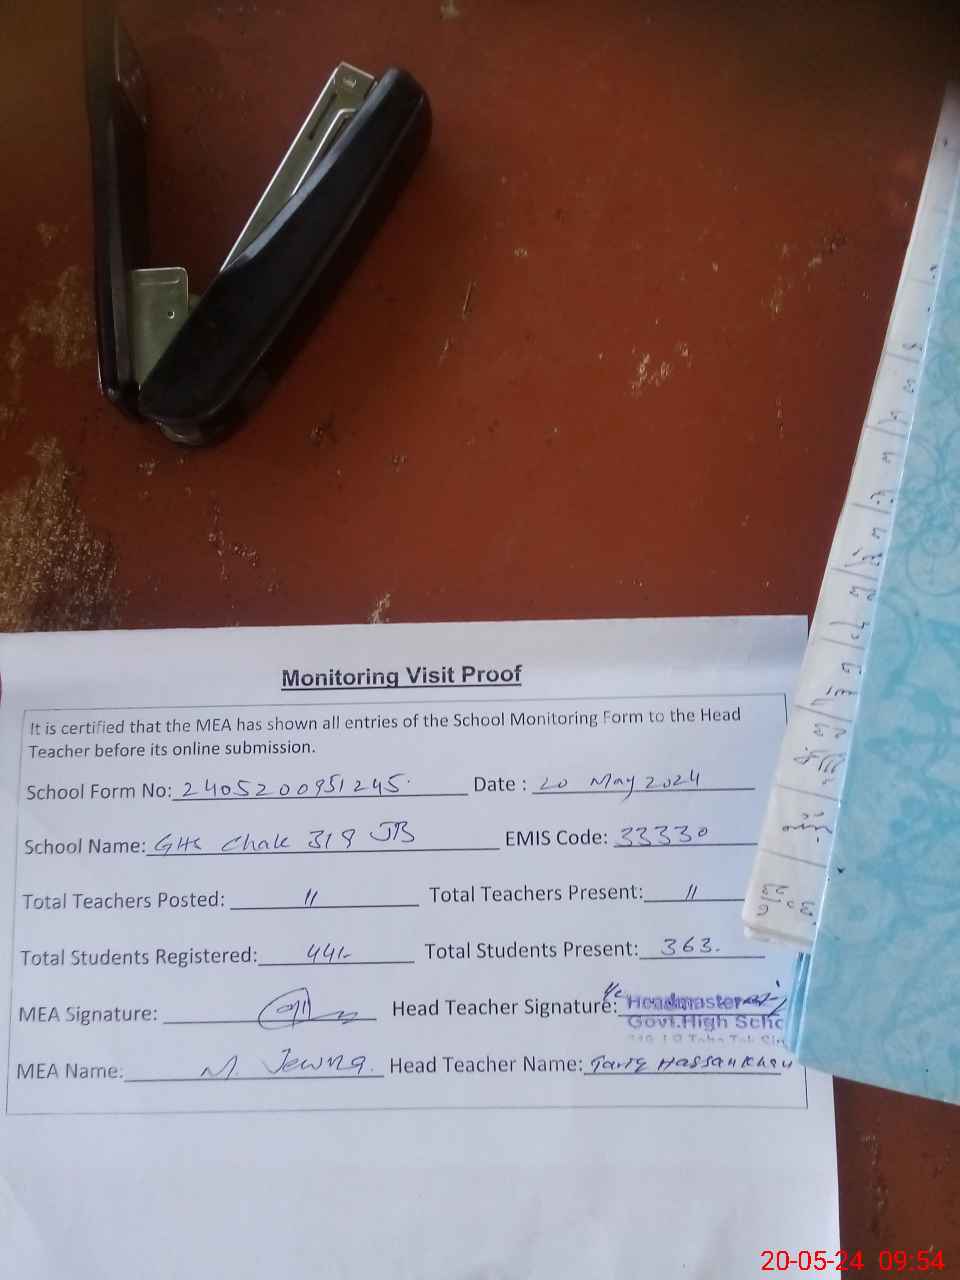 Monitoring Visit Proof
It is certified that the MEA has shown all entries of the School Monitoring Form to the Head
Teacher before its online submission.
School Form No: 2405200951245 Date : 20 May 2024
School Name: GHS Chak 319 JB EMIS Code: 33330
Total Teachers Posted: 11 Total Teachers Present: 11
Total Students Registered: 441 Total Students Present: 363.
MEA Signature: Head Teacher Signature: Headmaster
Govt.High Scho
MEA Name: M. Head Teacher Name: Tariq Hassan Khan
20-05-24 09:54